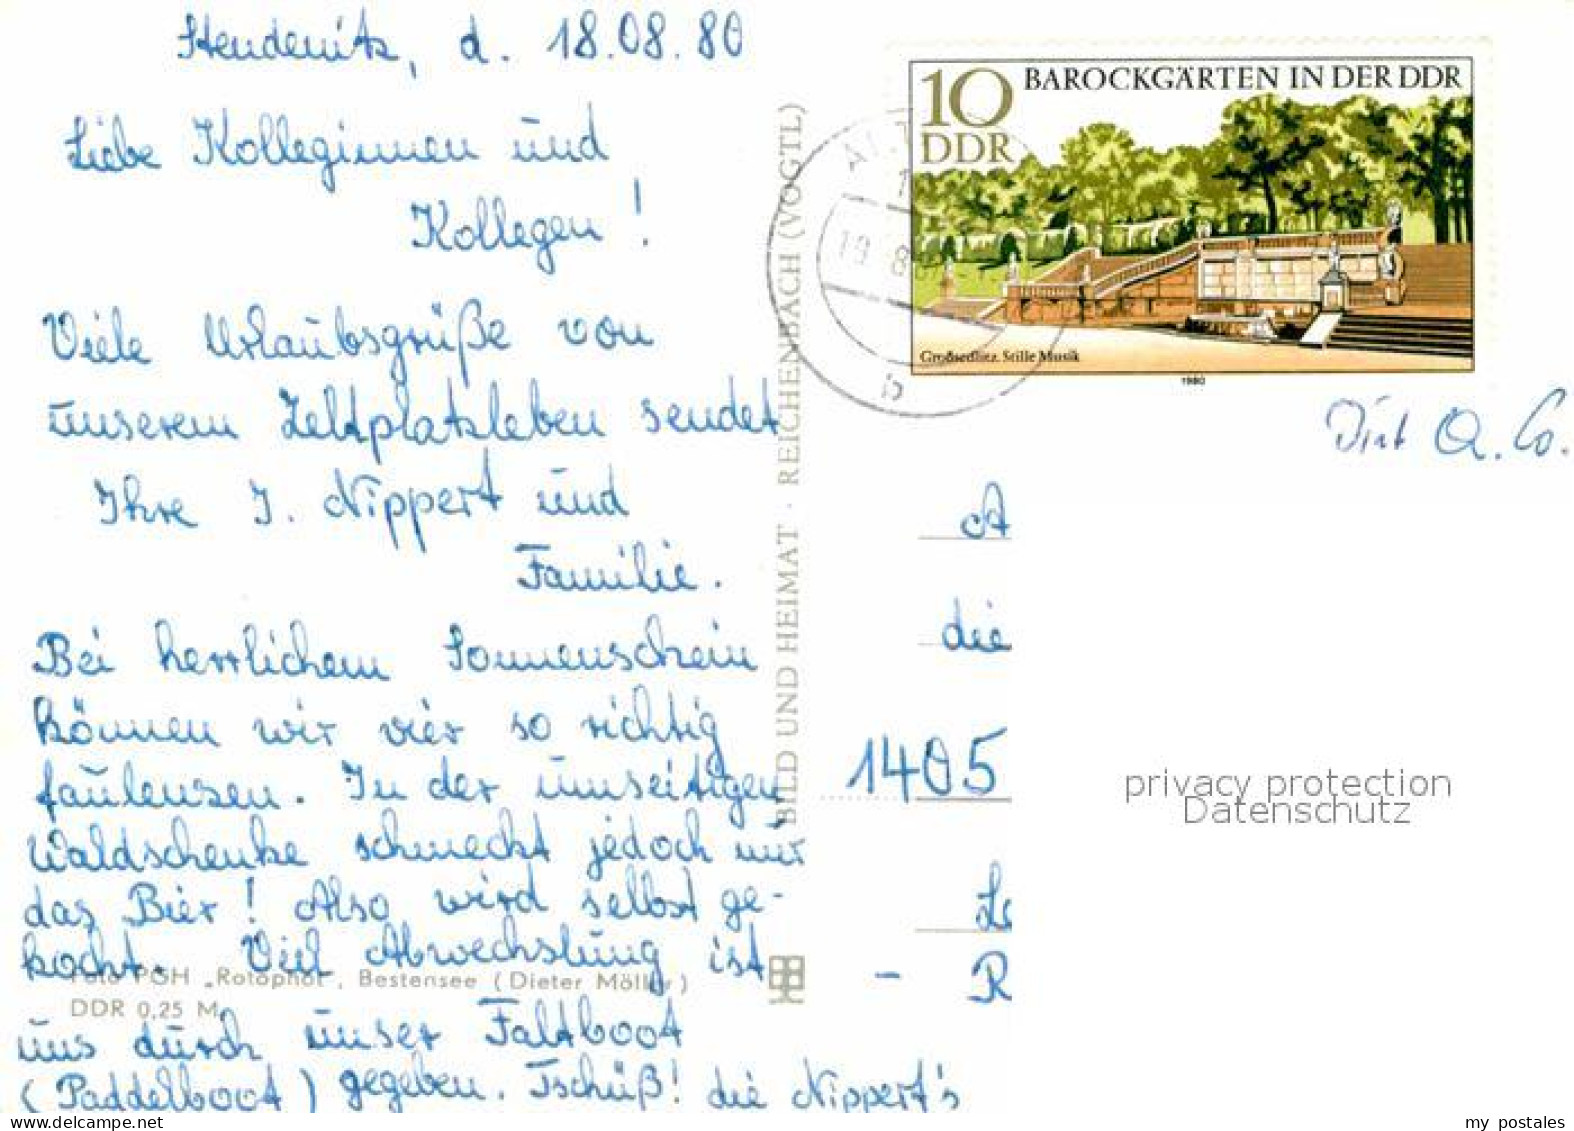 Stendenitz, d. 18.08.80
Liebe Kolleginnen und
Kollegen!
Viele Urlaubsgrüße von
unserem Zeltplatzleben sendet
Ihre I. Nippert und
Familie.
Bei herrlichem Sonnenschein
können wir vier so richtig
faulenzen. In der umseitigen
Waldschenke schmeckt jedoch nur
das Bier! Also wird selbst ge-
kocht. Viel Abwechslung ist
uns durch unser Faltboot
(Paddelboot) gegeben. Tschüß! die Nippert's
Foto PGH „Rotophot", Bestensee (Dieter Möller)
DDR 0,25 M
BILD UND HEIMAT · REICHENBACH (VOGTL)
10
DDR
BAROCKGÄRTEN IN DER DDR
Großsedlitz. Stille Musik
1980
19 8
b
A
die
1405
- R
privacy protection
Datenschutz
my postales